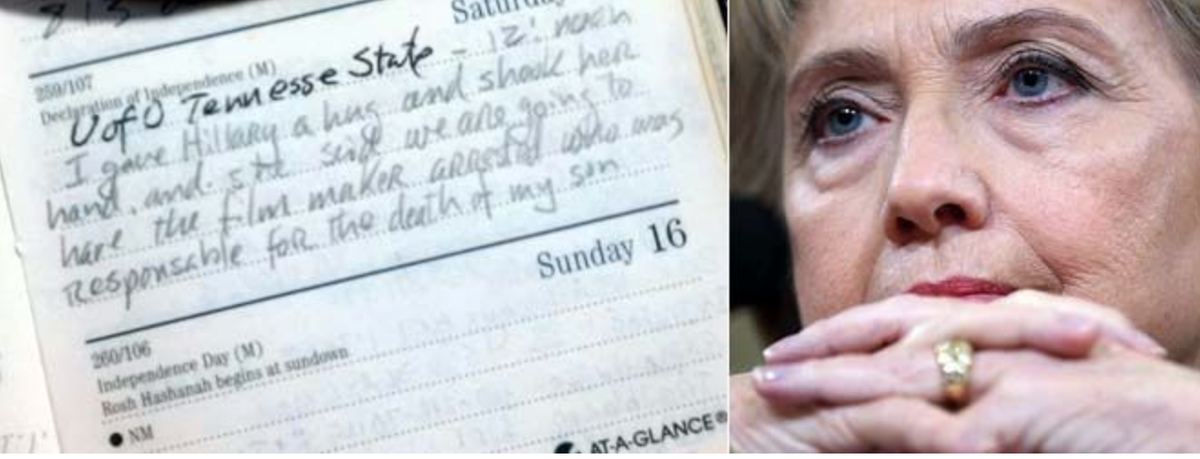 Saturday
259/107
Declaration of Independence (M)
U of O Tennesse State - 12: noon
I gave Hillary a hug and shook her
hand. and she said we are going to
have the film maker arrested who was
responsable for the death of my son
Sunday 16
260/106
Independence Day (M)
Rosh Hashanah begins at sundown
● NM
AT-A-GLANCE®